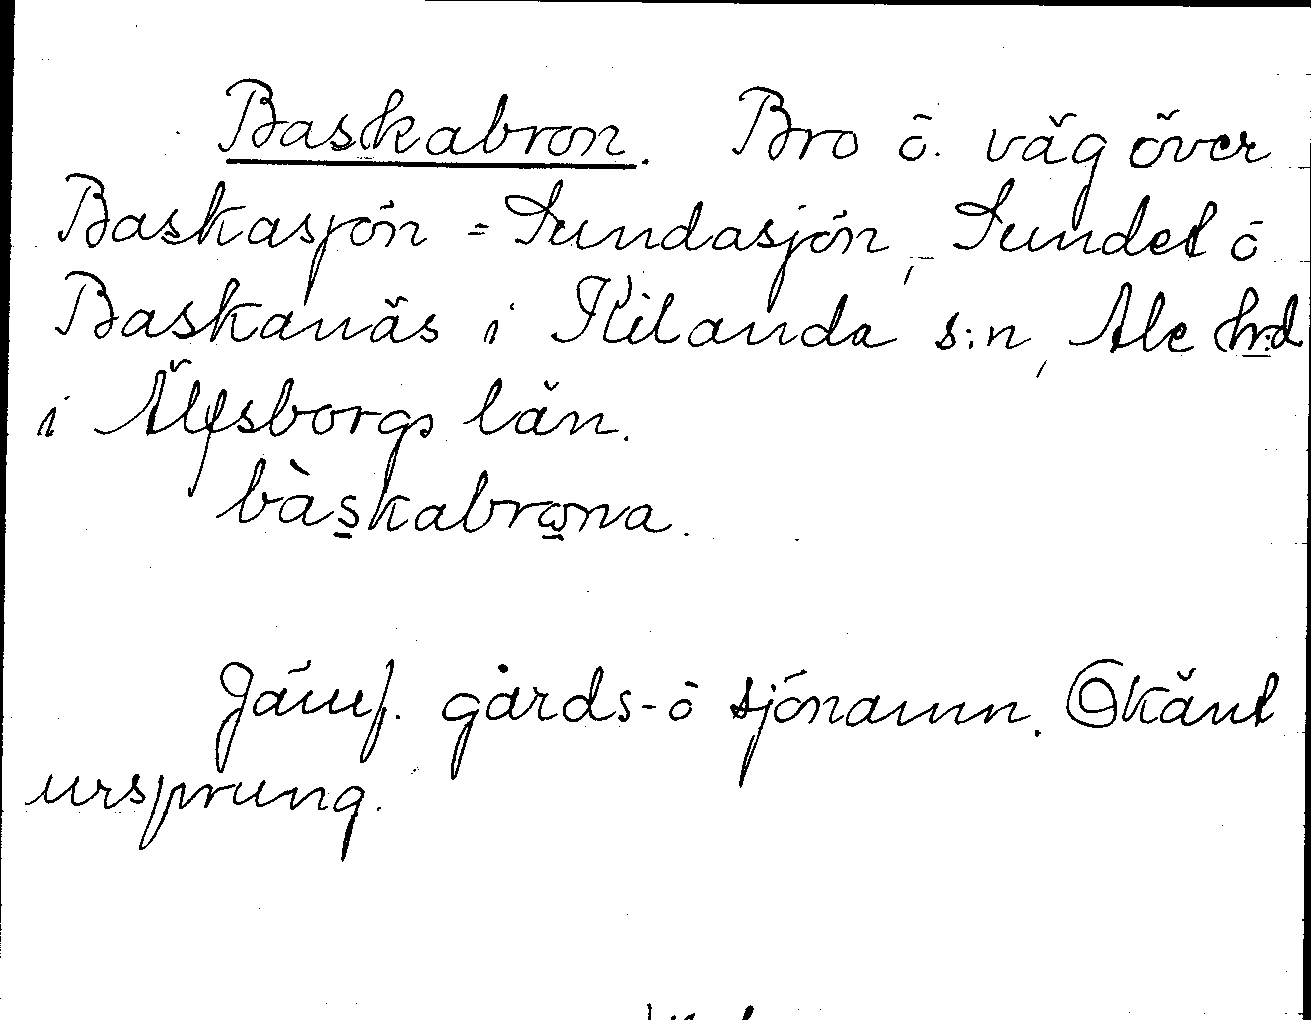 Baskabron. Bro ō. väg över
Baskasjön = Sundasjön, Sundet ō
Baskanäs i Kilanda s:n, Ale hrd
i Älfsborgs län.
bàskabrona.
Jämf. gårds- ō sjönamn. Okänt
ursprung.